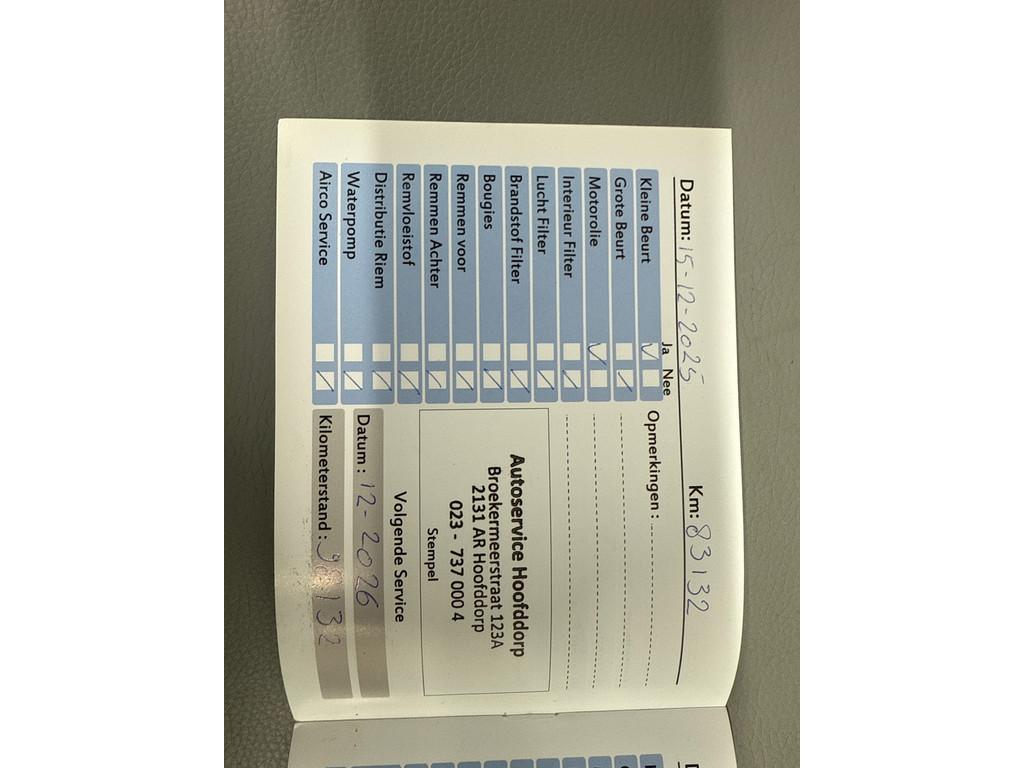 Datum: 15-12-2025 Km: 83132
Ja Nee
Kleine Beurt
Grote Beurt
Motorolie
Interieur Filter
Lucht Filter
Brandstof Filter
Bougies
Remmen voor
Remmen Achter
Remvloeistof
Distributie Riem
Waterpomp
Airco Service
Opmerkingen :
Autoservice Hoofddorp
Broekermeerstraat 123A
2131 AR Hoofddorp
023 - 737 000 4
Stempel
Volgende Service
Datum : 12-2026
Kilometerstand :